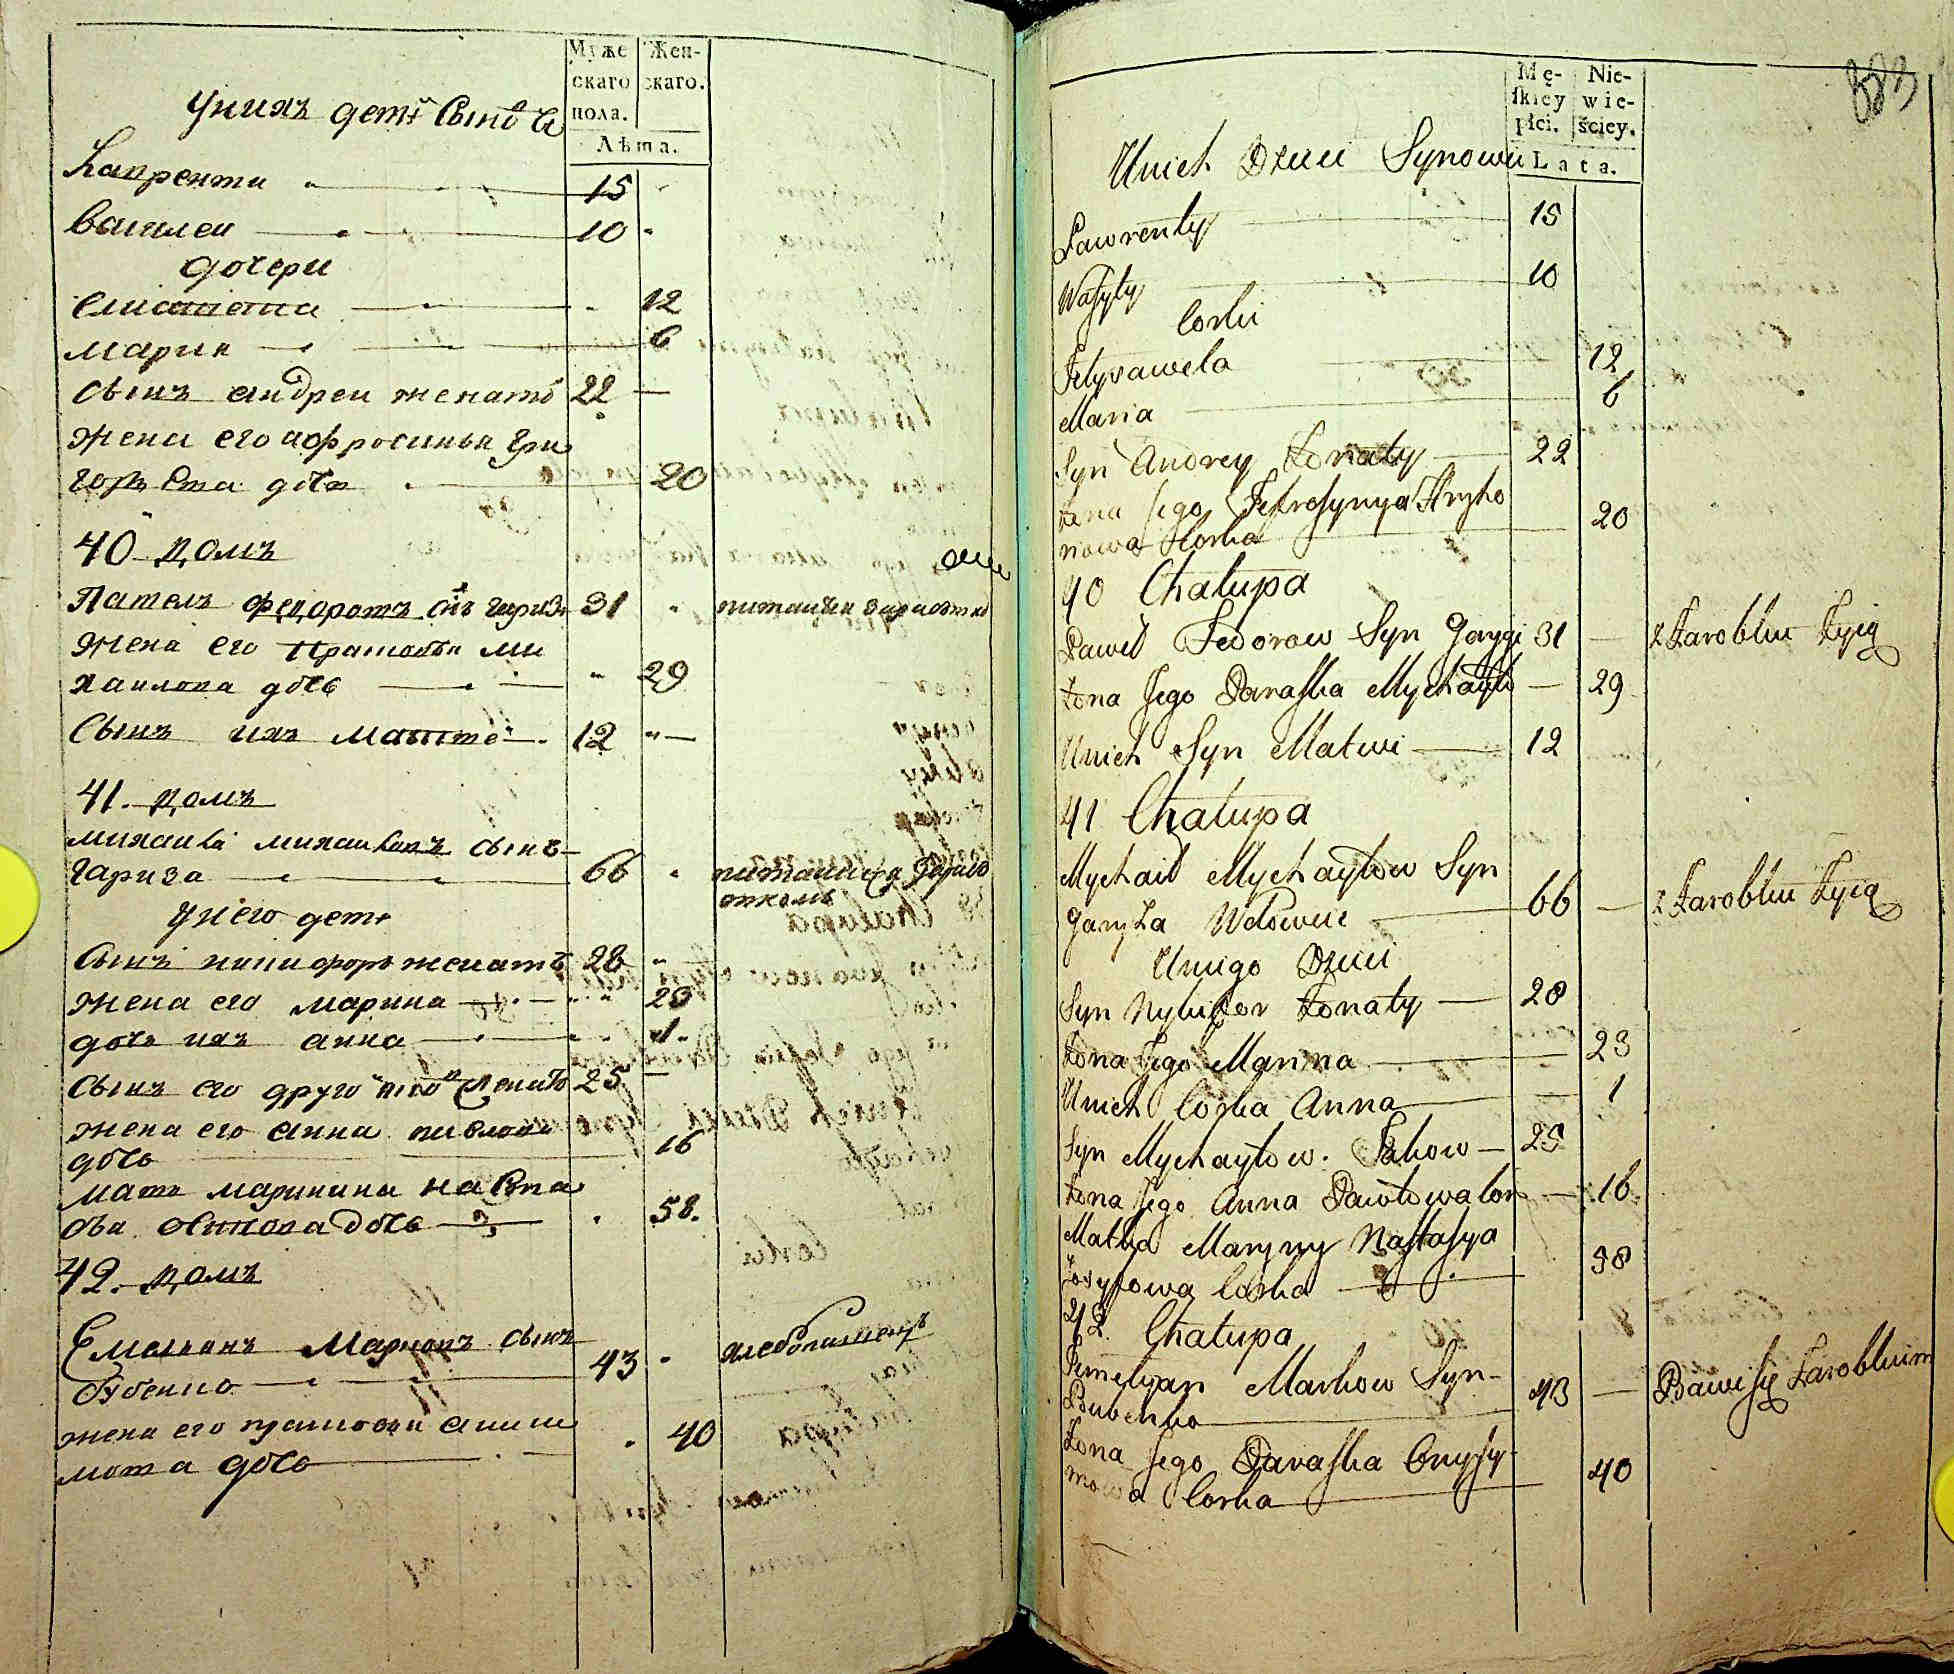 Муже
скаго
пола.
Жен-
скаго.
Лѣта.
У нихъ дети Сынов
Лаврентии 15
Василеи 10
дочери
Елисавета 12
Мария 6
Сынъ андреи женатъ 22
Жена его афросинья Гри
горьева дочь 20
40 домъ
Павелъ федоровъ сынъ гариза 31
Жена его Прасковья ми
хаилова дочь 29
Сынъ ихъ Матвей 12
41. домъ
михаила михаиловъ сынъ
гариза 66 питаицея зарабо
откомъ
У него дети
Сынъ никифоръ женатъ 28
Жена его марина 23
дочь ихъ анна 1
Сынъ его другой женатъ 25
Жена его анна павлова
дочь 16
мать маринина настас
осипова дочь 58.
42. домъ
Емельянъ Марковъ сынъ
бубенко 43 хлебопашецъ
жена его прасковья аниси
мова дочь 40
883
Mę-
skiey
płci.
Nie-
wie-
ściey.
Lata.
Unich Dzieci Synowie
Ławrenty 15
Wasyly 10
Corki
Jelysaweta 12
Maria 6
Syn Andrey Żonaty 22
Żona Jego Jefrosynya Hryho
riowa Corka 20
40 Chałupa
Paweł Fedorow Syn Garyza 31 z Zarobku Żyią
Żona Jego Paraska Mychayło 29
Unich Syn Matwi 12
41 Chałupa
Mychaił Mychayłow Syn
Garyza Wdowiec 66 z Zarobku Żyią
Uniego Dzieci
Syn Nykifor Żonaty 28
Żona Jego Marina 23
Unich Corka Anna 1
Syn Mychayłow Jakow 25
Żona Jego Anna Pawłowa Cor 16
Matka Maryny Nastasya
Josypowa Corka 58
42 Chałupa
Jemelyan Markow Syn
Bubenko 43 Bawi się Zarobkiem
Żona Jego Paraska Onysy-
mowa Corka 40